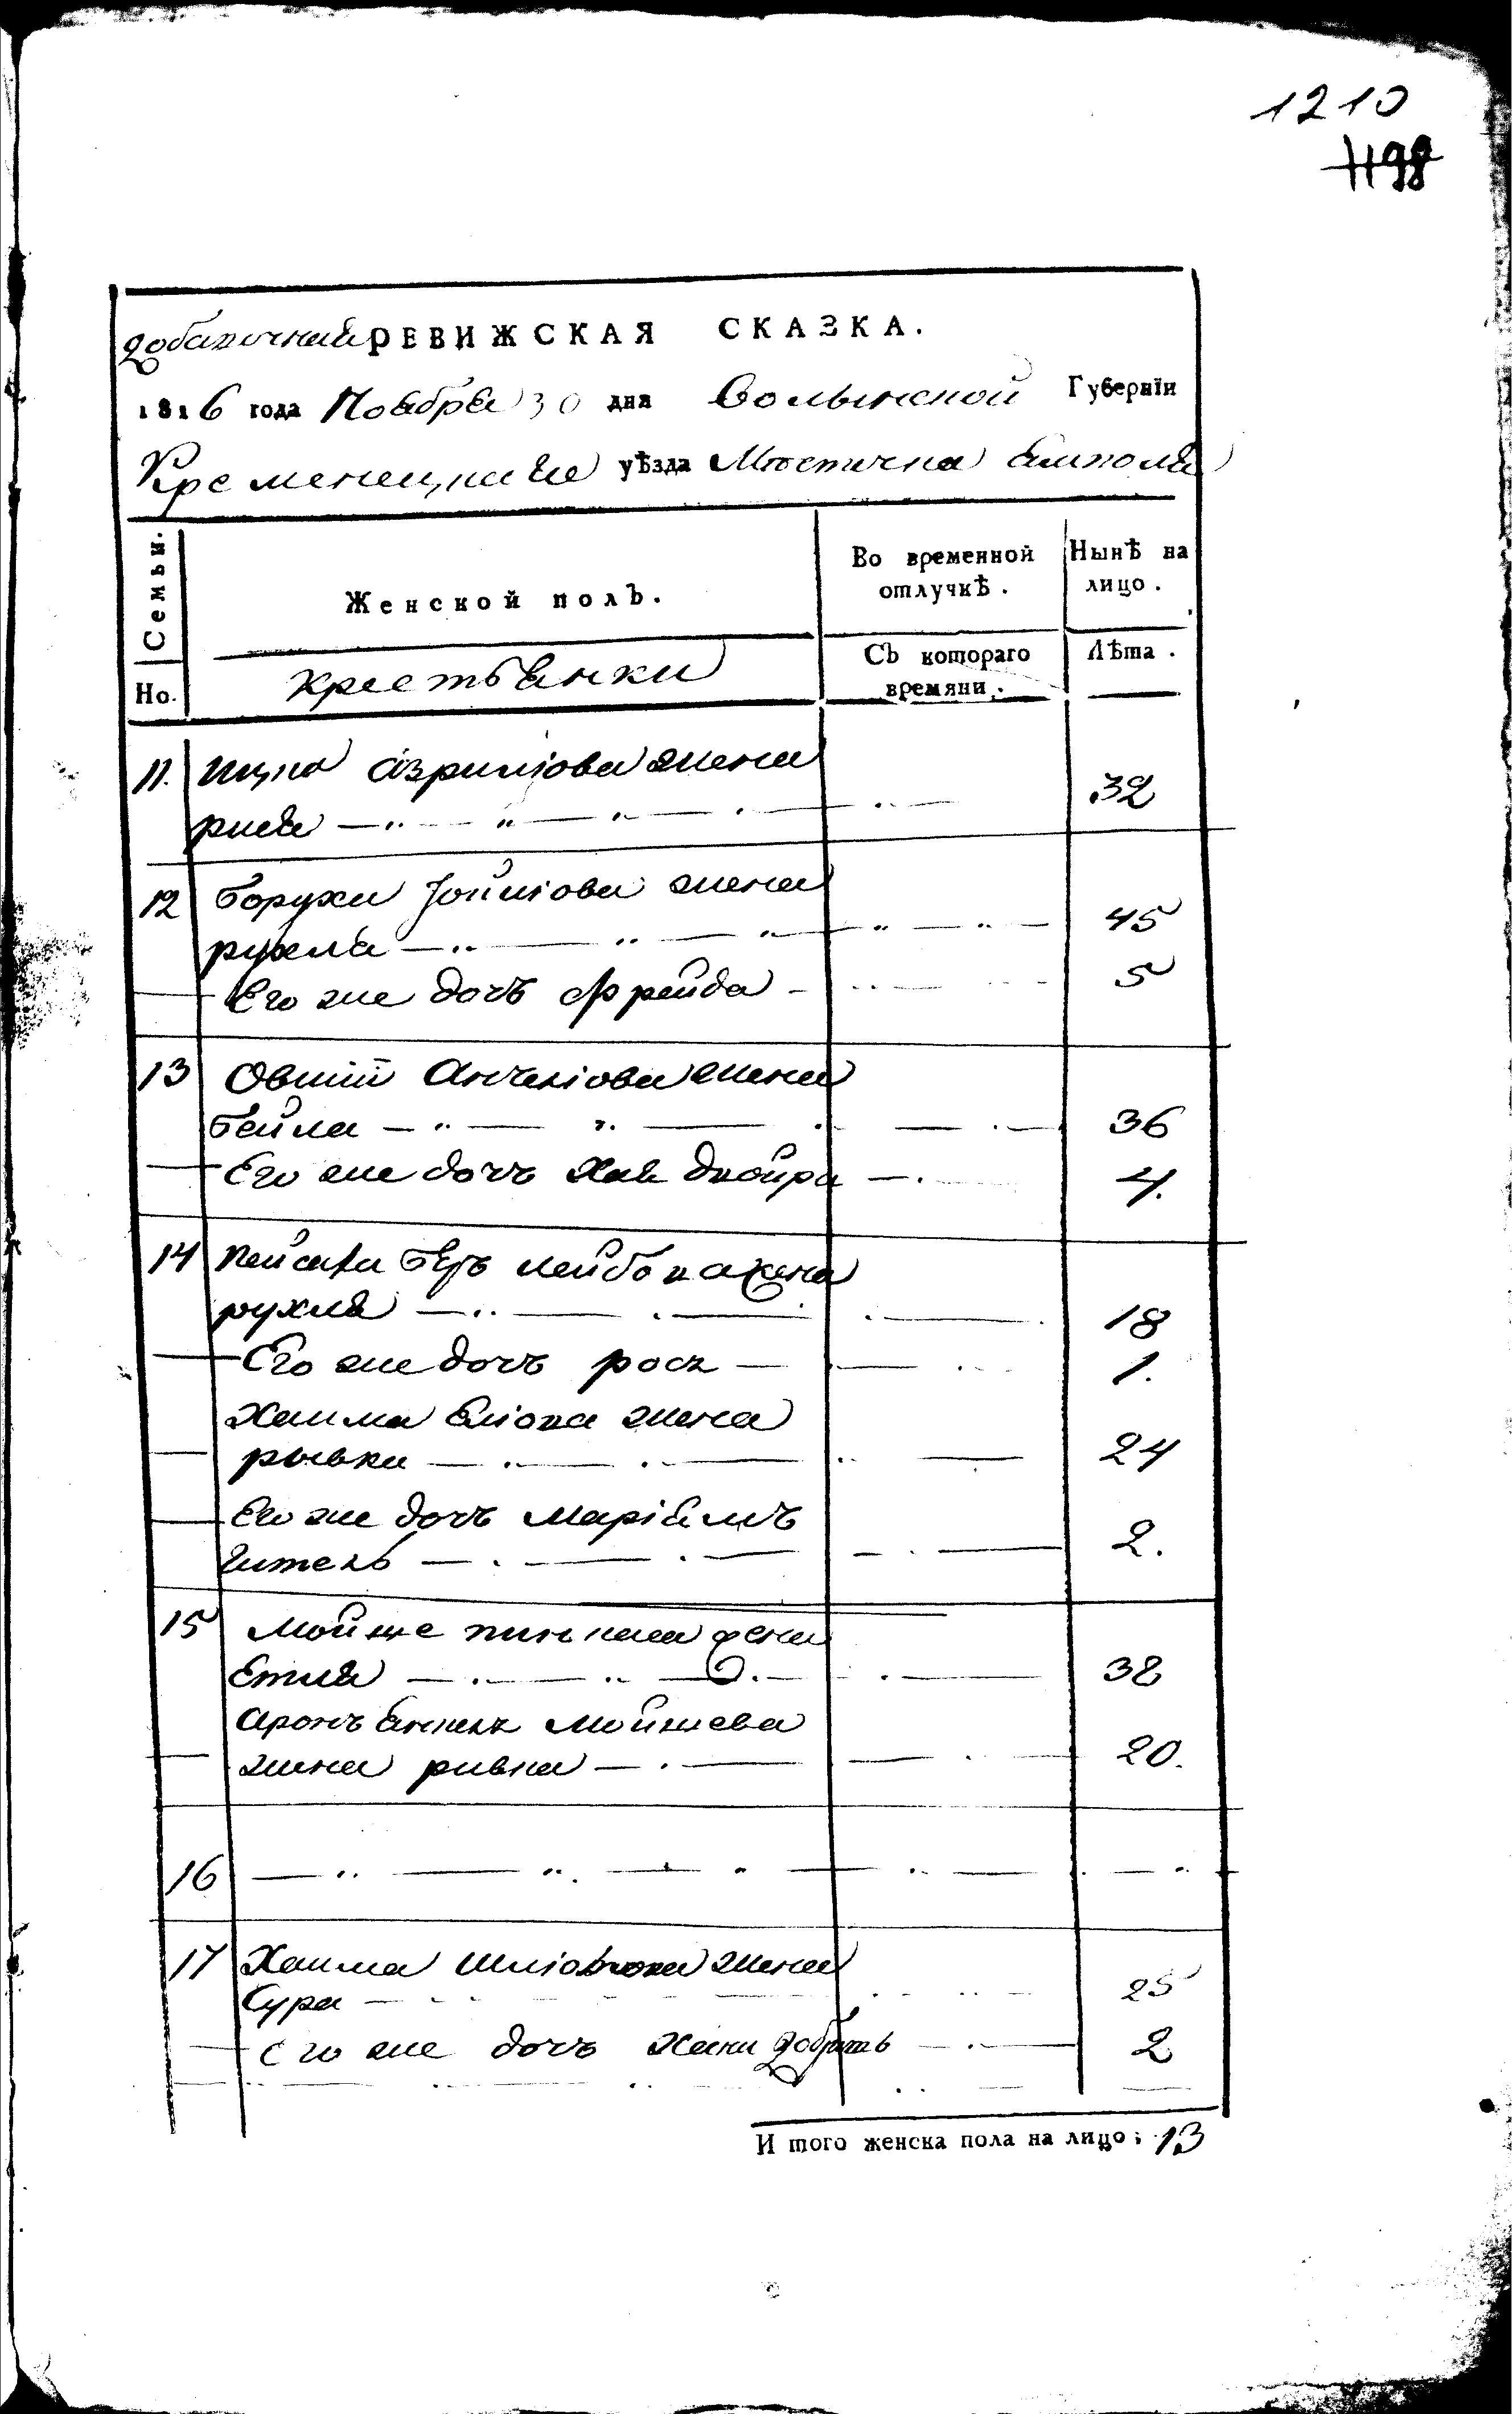 1210
1198
добавочная РЕВИЖСКАЯ СКАЗКА.
1816 года Ноября 30 дня Волынской Губернїи
Кременецкаго уѣзда Местечка Ямполя
Семьи.
Женской полъ.
Во временной отлучкѣ.
Нынѣ на лицо.
Но.
крестьянки
Съ котораго времяни.
Лѣта.
11. Ицка Азриліова жена
рися 32
12 Боруха Іойліова жена
рухля 45
Его же дочъ Фрейда 5
13 Овшій Анчеліова жена
Бейла 36
Его же дочъ Хая двойра 4.
14 Пейсаха Беръ лейбова жена
рухля 18
Его же дочъ роса 1.
Хаима Еліова жена
рывка 24
Его же дочъ Маріямъ
Гитель 2.
15 Мойше пинкаса жена
Етля 38
Аронъ Янкель Мойшева
жена ривка 20.
16
17 Хаима Шліомова жена
Сура 25
Его же дочъ Хана добришь 2
И того женска пола на лицо: 13